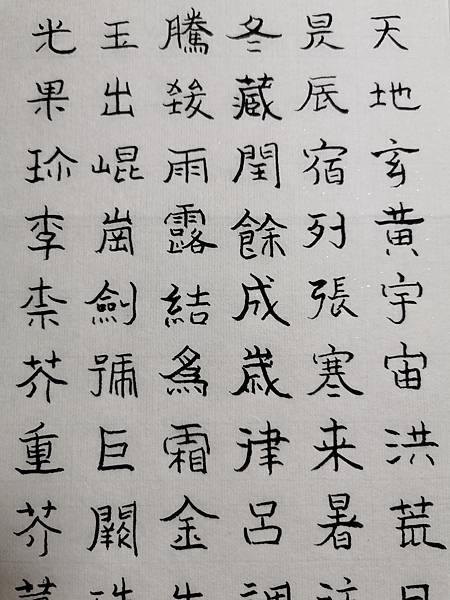 天地玄黄宇宙洪荒
昃辰宿列張寒来暑
冬藏閏餘成歳律呂
騰致雨露結爲霜金
玉出崐崗劍號巨闕
光果珎李柰芥重芥